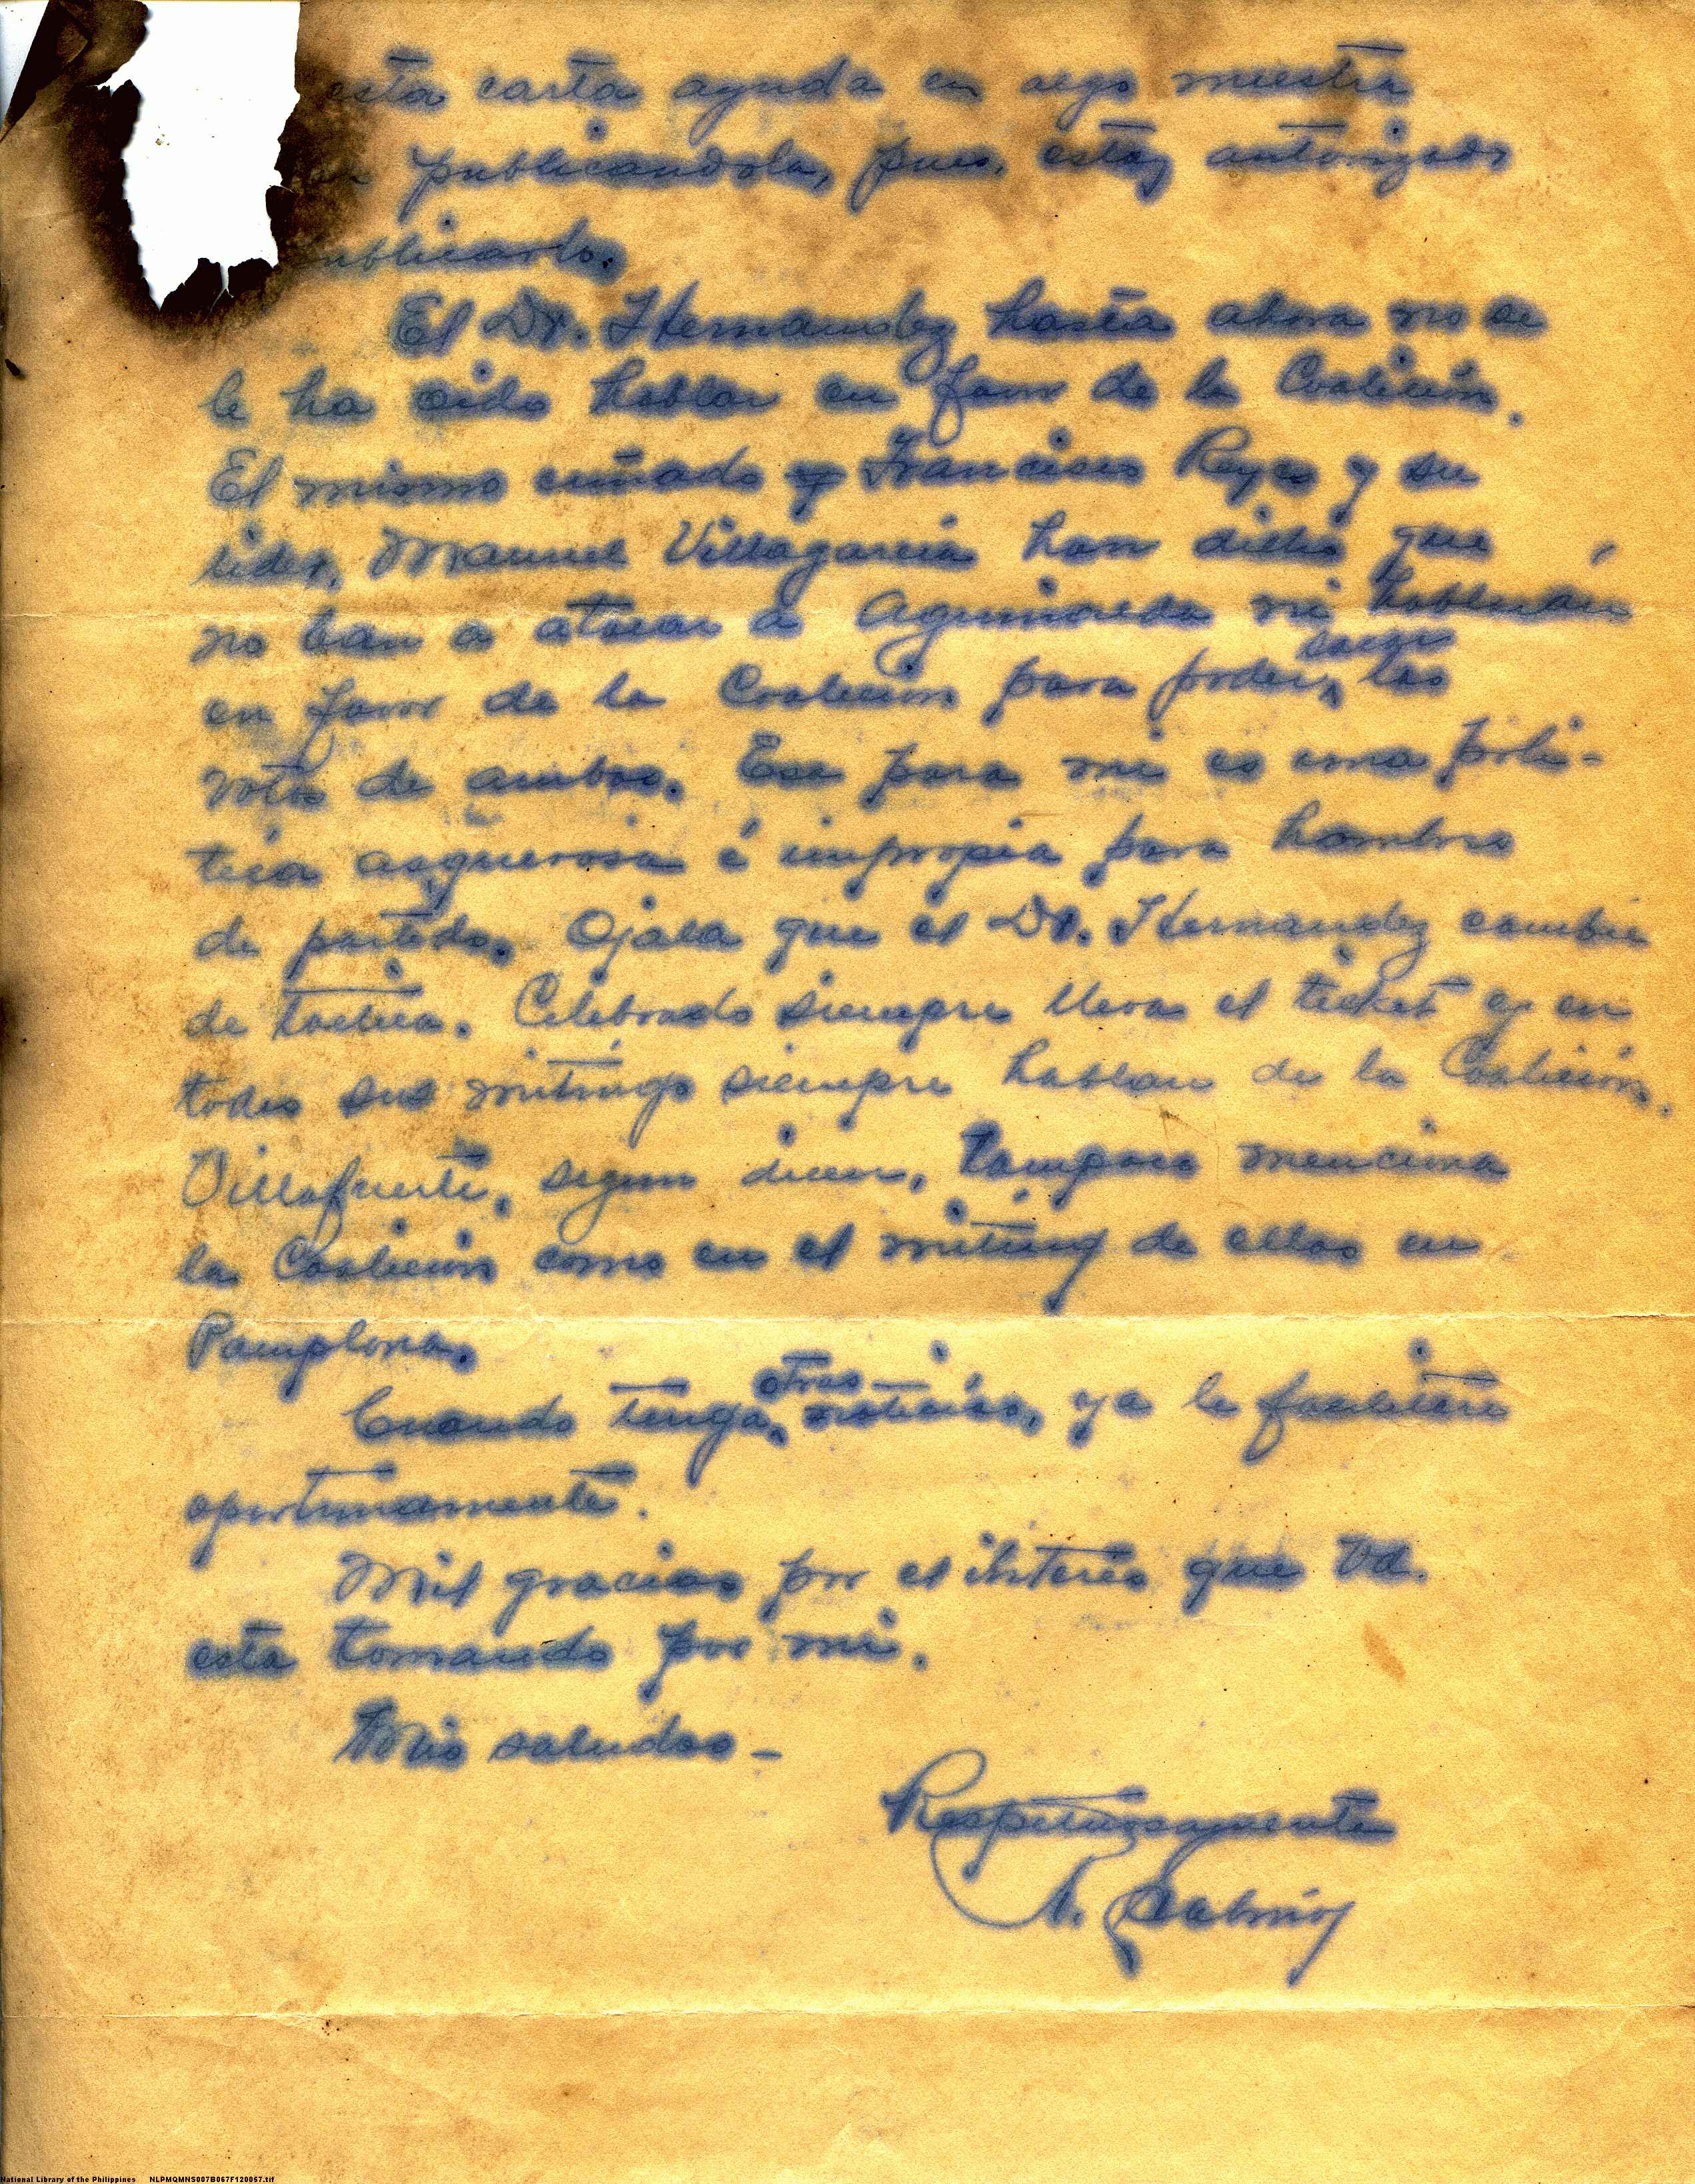 esta carta ayuda en algo nuestra
publicandola, pues, estoy autorizado
ublicarlo.
El Dr. Hernandez hasta ahora no se
le ha oido hablar en favor de la Coalición.
El mismo cuñado y Francisco Reyes y su
lider, Manuel Villagarcia han dicho que
no ban a atacar a Aguinaldo ni hablarán
en favor de la Coalición para poder sacar los
votos de ambos. Esa para mi es una poli-
tica asquerosa é impropia para hombres
de partido. Ojala que el Dr. Hernandez cambie
de tactica. Celebrado siempre lleva el ticket y en
todos sus mitings siempre hablan de la Coalición.
Villafuerte, segun dicen, tampoco menciona
la Coalición como en el miting de ellos en
Pamplona.
Cuando tenga otras noticias, ya le facilitaré
oportunamente.
Mil gracias por el interés que Vd.
esta tomando por mi.
Mis saludos -
Respetuosamente
National Library of the Philippines NLPMQMNS007B067F120057.tif